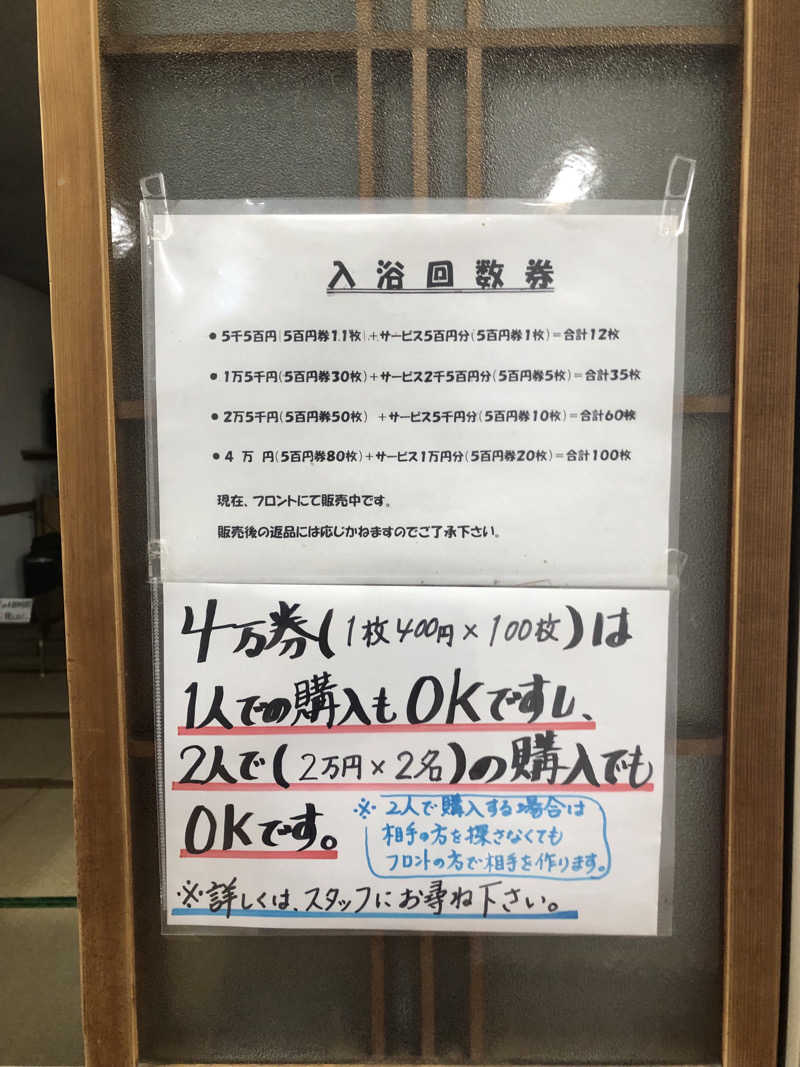 入浴回数券
●5千5百円(5百円券11枚)+サービス5百円分(5百円券1枚)=合計12枚
●1万5千円(5百円券30枚)+サービス2千5百円分(5百円券5枚)=合計35枚
●2万5千円(5百円券50枚) +サービス5千円分(5百円券10枚)=合計60枚
●4 万 円(5百円券80枚)+サービス1万円分(5百円券20枚)=合計100枚
現在、フロントにて販売中です。
販売後の返品には応じかねますのでご了承下さい。
4万券(1枚400円×100枚)は
1人での購入もOKですし、
2人で(2万円×2名)の購入でも
OKです。
※2人で購入する場合は
相手の方を探さなくても
フロントの方で相手を作ります。
※詳しくは、スタッフにお尋ね下さい。